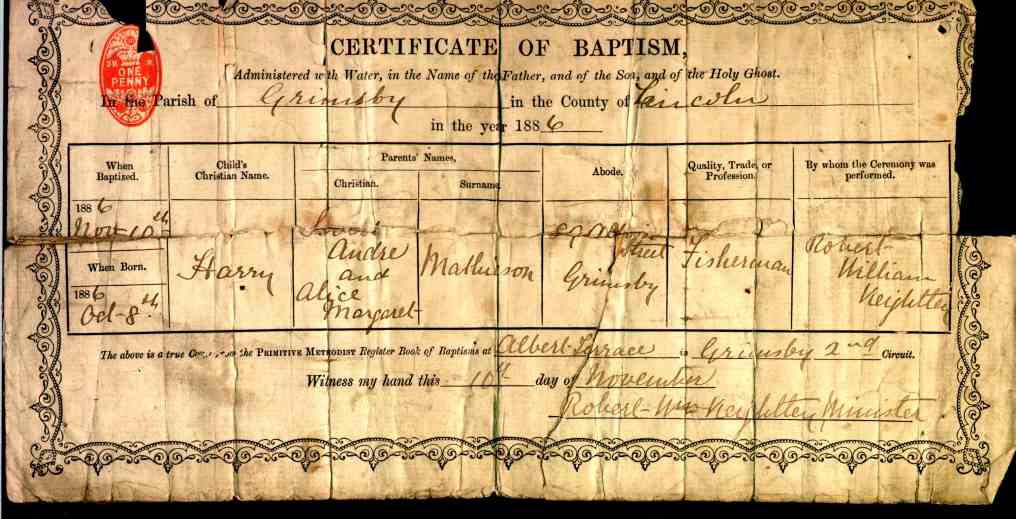 ONE
PENNY
CERTIFICATE OF BAPTISM,
Administered with Water, in the Name of the Father, and of the Son, and of the Holy Ghost.
In the Parish of Grimsby in the County of Lincoln
in the year 1886
When Baptized.
Child's Christian Name.
Parents' Names,
Christian.
Surname.
Abode.
Quality, Trade, or Profession.
By whom the Ceremony was performed.
1886
Nov 10th
When Born.
1886
Oct-8th
Harry
Andre
and
Alice
Margaret
Mathieson
Street
Grimsby
Fisherman
Robert
William
Keightley
The above is a true the PRIMITIVE METHODIST Register Book of Baptisms at Albert Terrace Grimsby 2nd Circuit.
Witness my hand this 10th day of November
Robert Wm Keightley Minister